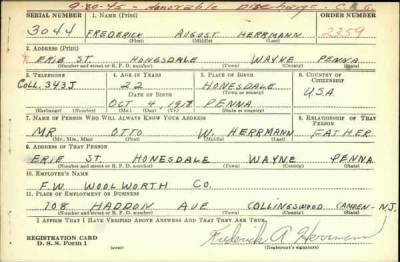 9-30-45 - Honorable Discharge - C.
SERIAL NUMBER 1. NAME (Print) ORDER NUMBER
3044 FREDERICK AUGUST HERRMANN 2359
(First) (Middle) (Last)
2. ADDRESS (Print)
ERIE ST. HONESDALE WAYNE PENNA
(Number and street or R. F. D. number) (Town) (County) (State)
3. TELEPHONE 4. AGE IN YEARS 5. PLACE OF BIRTH 6. COUNTRY OF CITIZENSHIP
COLL. 343J 22 HONESDALE
DATE OF BIRTH (Town or county) U.S.A.
OCT 4, 1918 PENNA
(Exchange) (Number) (Mo.) (Day) (Yr.) (State or country)
7. NAME OF PERSON WHO WILL ALWAYS KNOW YOUR ADDRESS 8. RELATIONSHIP OF THAT PERSON
MR OTTO W. HERRMANN FATHER
(Mr., Mrs., Miss) (First) (Middle) (Last)
9. ADDRESS OF THAT PERSON
ERIE ST. HONESDALE WAYNE PENNA
(Number and street or R. F. D. number) (Town) (County) (State)
10. EMPLOYER'S NAME
F.W. WOOLWORTH CO.
11. PLACE OF EMPLOYMENT OR BUSINESS
708 HADDON AVE COLLINGSWOOD CAMDEN - N.J.
(Number and street or R. F. D. number) (Town) (County) (State)
I AFFIRM THAT I HAVE VERIFIED ABOVE ANSWERS AND THAT THEY ARE TRUE.
REGISTRATION CARD
D. S. S. Form 1
Frederick A Herrmann
(Registrant's signature)